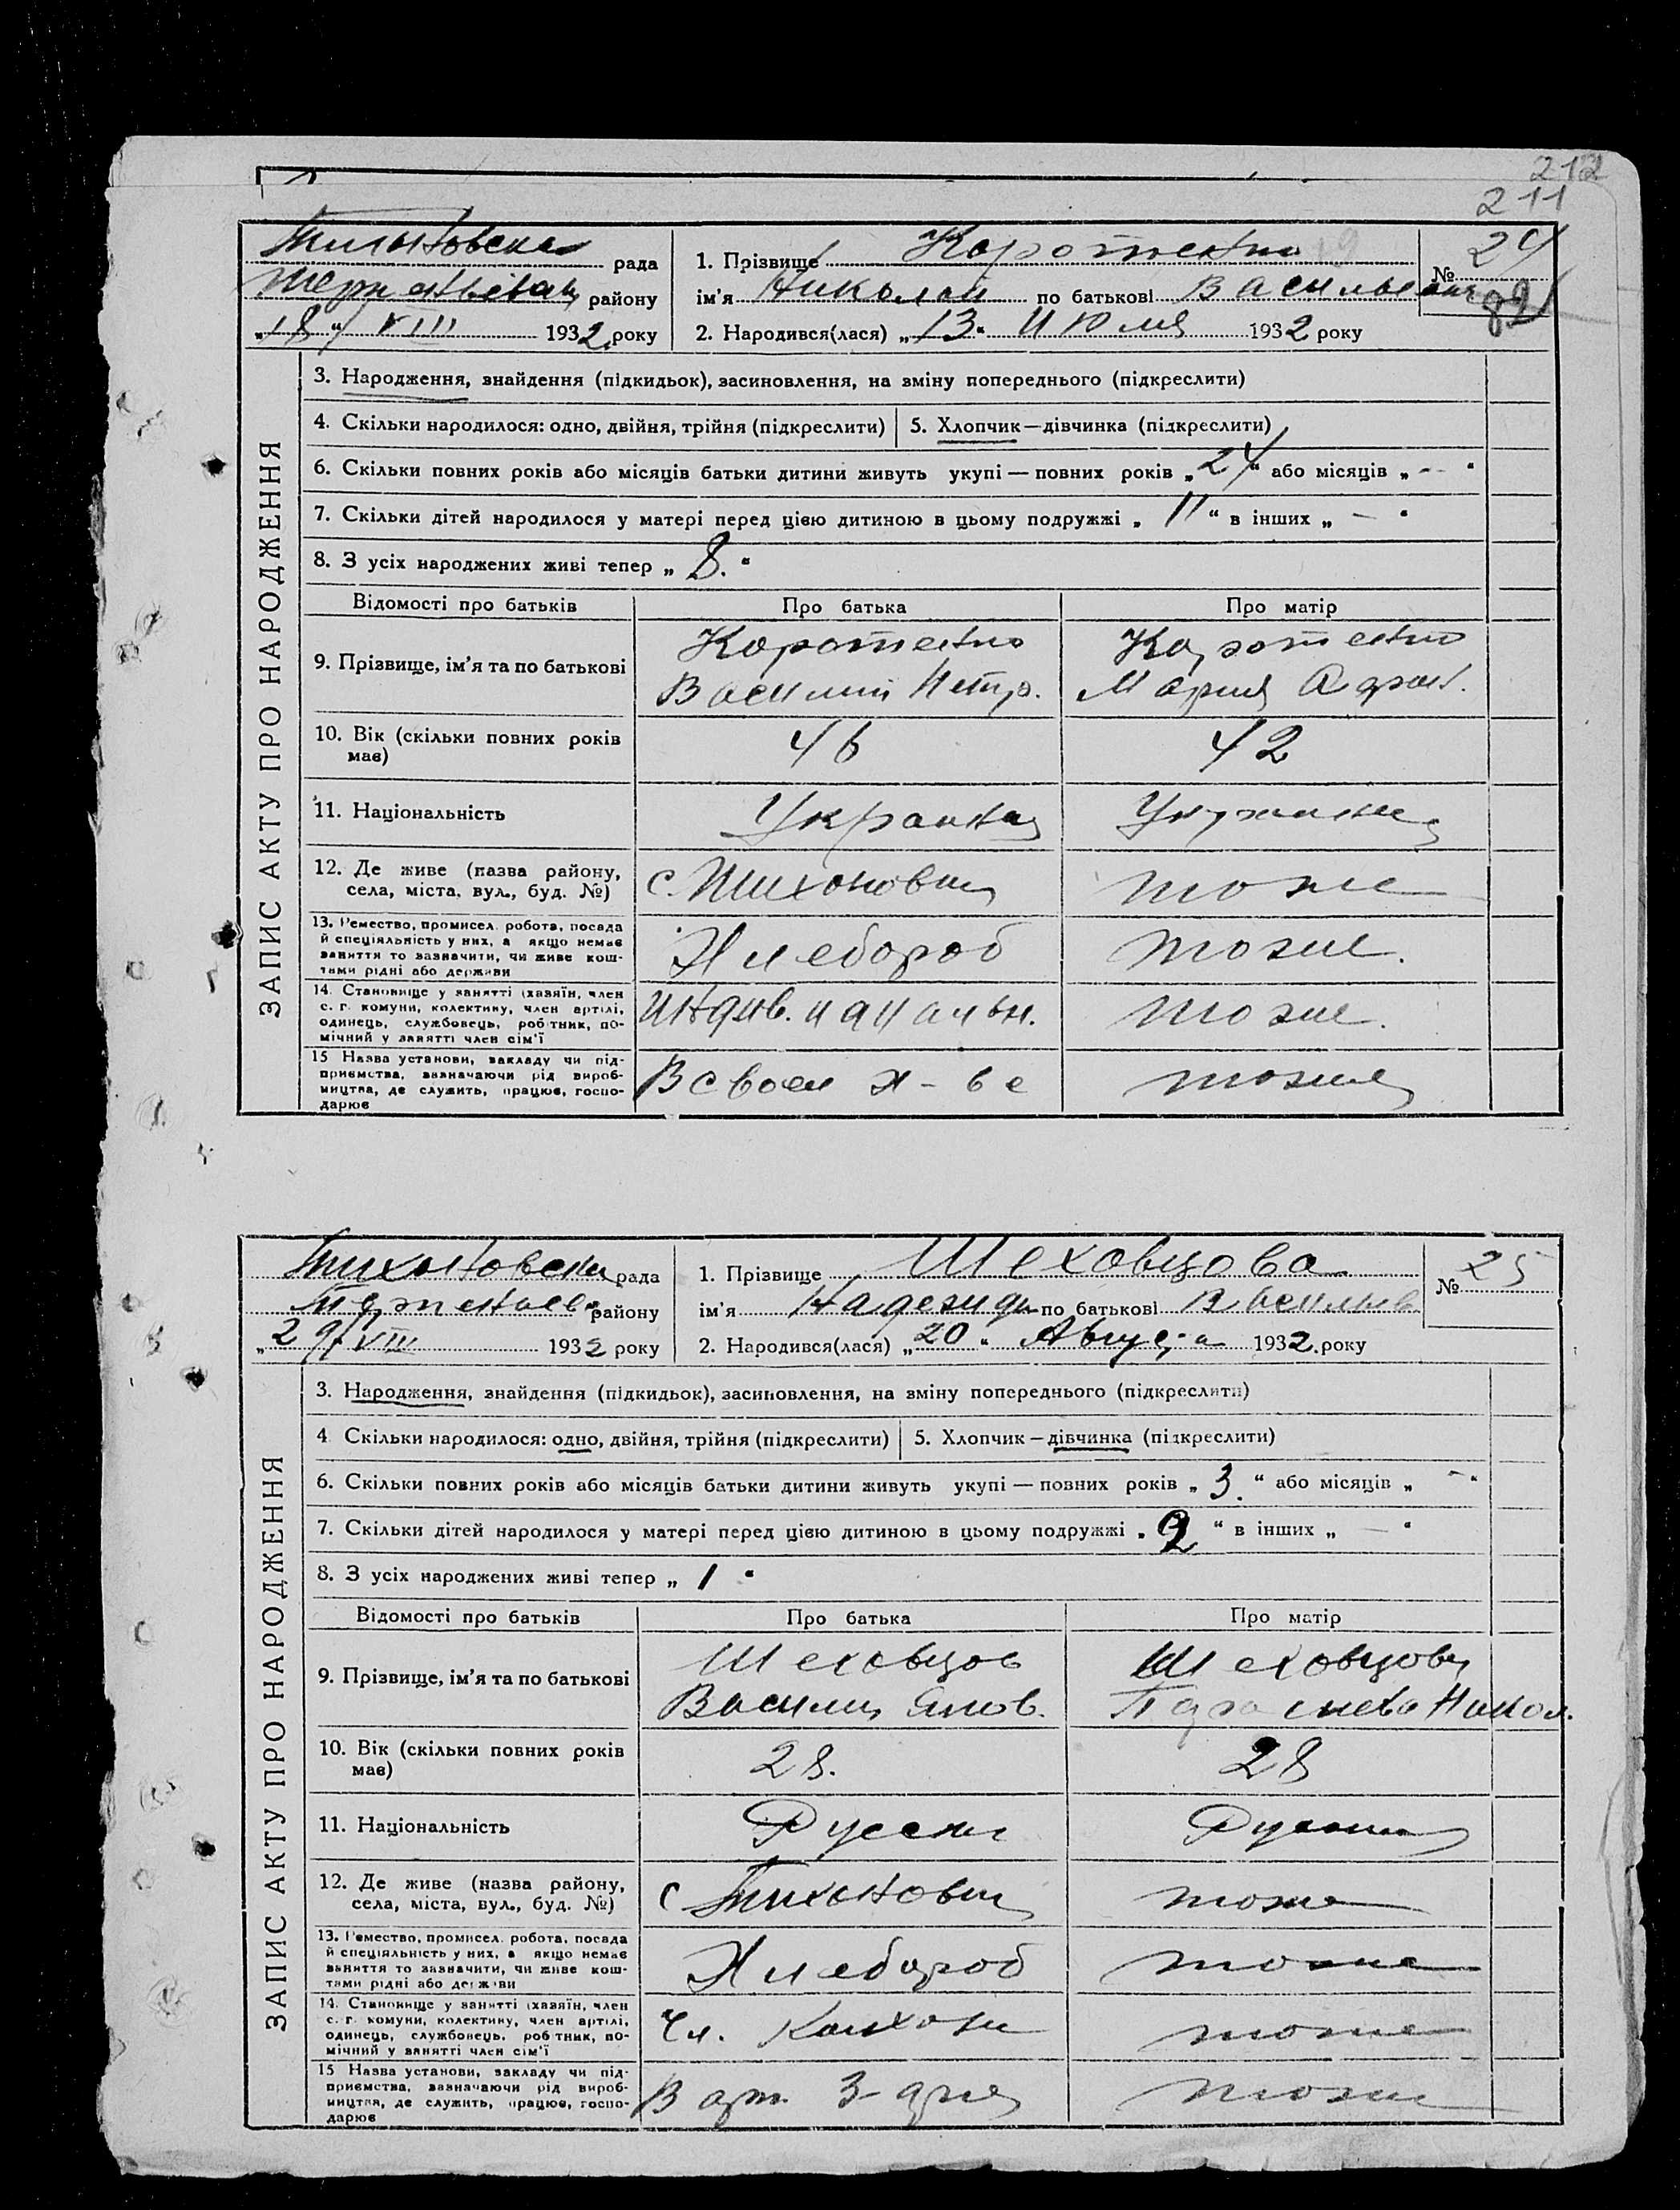 212
211
рада
району
„18“ VIII 1932 року
1. Прізвище Коротенко
ім'я Николай по батькові Василь
2. Народився(лася) „13“ Июля 1932 року
№ 24
82
ЗАПИС АКТУ ПРО НАРОДЖЕННЯ
3. Народження, знайдення (підкидьок), засиновлення, на зміну попереднього (підкреслити)
4. Скільки народилося: одно, двійня, трійня (підкреслити) 5. Хлопчик—дівчинка (підкреслити)
6. Скільки повних років або місяців батьки дитини живуть укупі — повних років „24“ або місяців „—“
7. Скільки дітей народилося у матері перед цією дитиною в цьому подружжі „11“ в інших „—“
8. З усіх народжених живі тепер „8.“
Відомості про батьків Про батька Про матір
9. Прізвище, ім'я та по батькові
Коротенко Коротенко
Василий Петр. Мария
10. Вік (скільки повних років має) 46 42
11. Національність
12. Де живе (назва району, села, міста, вул., буд. №) с. Тихоновка тоже
13. Ремество, промисел, робота, посада й спеціяльність у них, а якщо немає заняття то зазначити, чи живе коштами рідні або держави Хлебороб тоже.
14. Становище у занятті (хазяїн, член с. г. комуни, колективу, член артілі, одинець, службовець, робітник, помічний у занятті член сім'ї тоже.
15 Назва установи, закладу чи підприємства, зазначаючи рід виробництва, де служить, працює, господарює В своем х-ве тоже
Тихоновска рада
району
„29“ VIII 1932 року
1. Прізвище Шеховцова
ім'я Надежда по батькові Васильев
2. Народився(лася) „20“ Августа 1932 року
№ 25
ЗАПИС АКТУ ПРО НАРОДЖЕННЯ
3. Народження, знайдення (підкидьок), засиновлення, на зміну попереднього (підкреслити)
4 Скільки народилося: одно, двійня, трійня (підкреслити) 5. Хлопчик—дівчинка (підкреслити)
6. Скільки повних років або місяців батьки дитини живуть укупі — повних років „3.“ або місяців „—“
7. Скільки дітей народилося у матері перед цією дитиною в цьому подружжі „2“ в інших „—“
8. З усіх народжених живі тепер „1“
Відомості про батьків Про батька Про матір
9. Прізвище, ім'я та по батькові
Шеховцов Шеховцова
Василий Яков. Парасковья Никол.
10. Вік (скільки повних років має) 28. 28
11. Національність Русский Русская
12. Де живе (назва району, села, міста, вул., буд. №) с Тихоновка тоже
13. Ремество, промисел, робота, посада й спеціяльність у них, а якщо немає заняття то зазначити, чи живе коштами рідні або держави Хлебороб тоже
14. Становище у занятті (хазяїн, член с. г. комуни, колективу, член артілі, одинець, службовець, робітник, помічний у занятті член сім'ї Чл. Колхоза тоже
15 Назва установи, закладу чи підприємства, зазначаючи рід виробництва, де служить, працює, господарює В арт. тоже